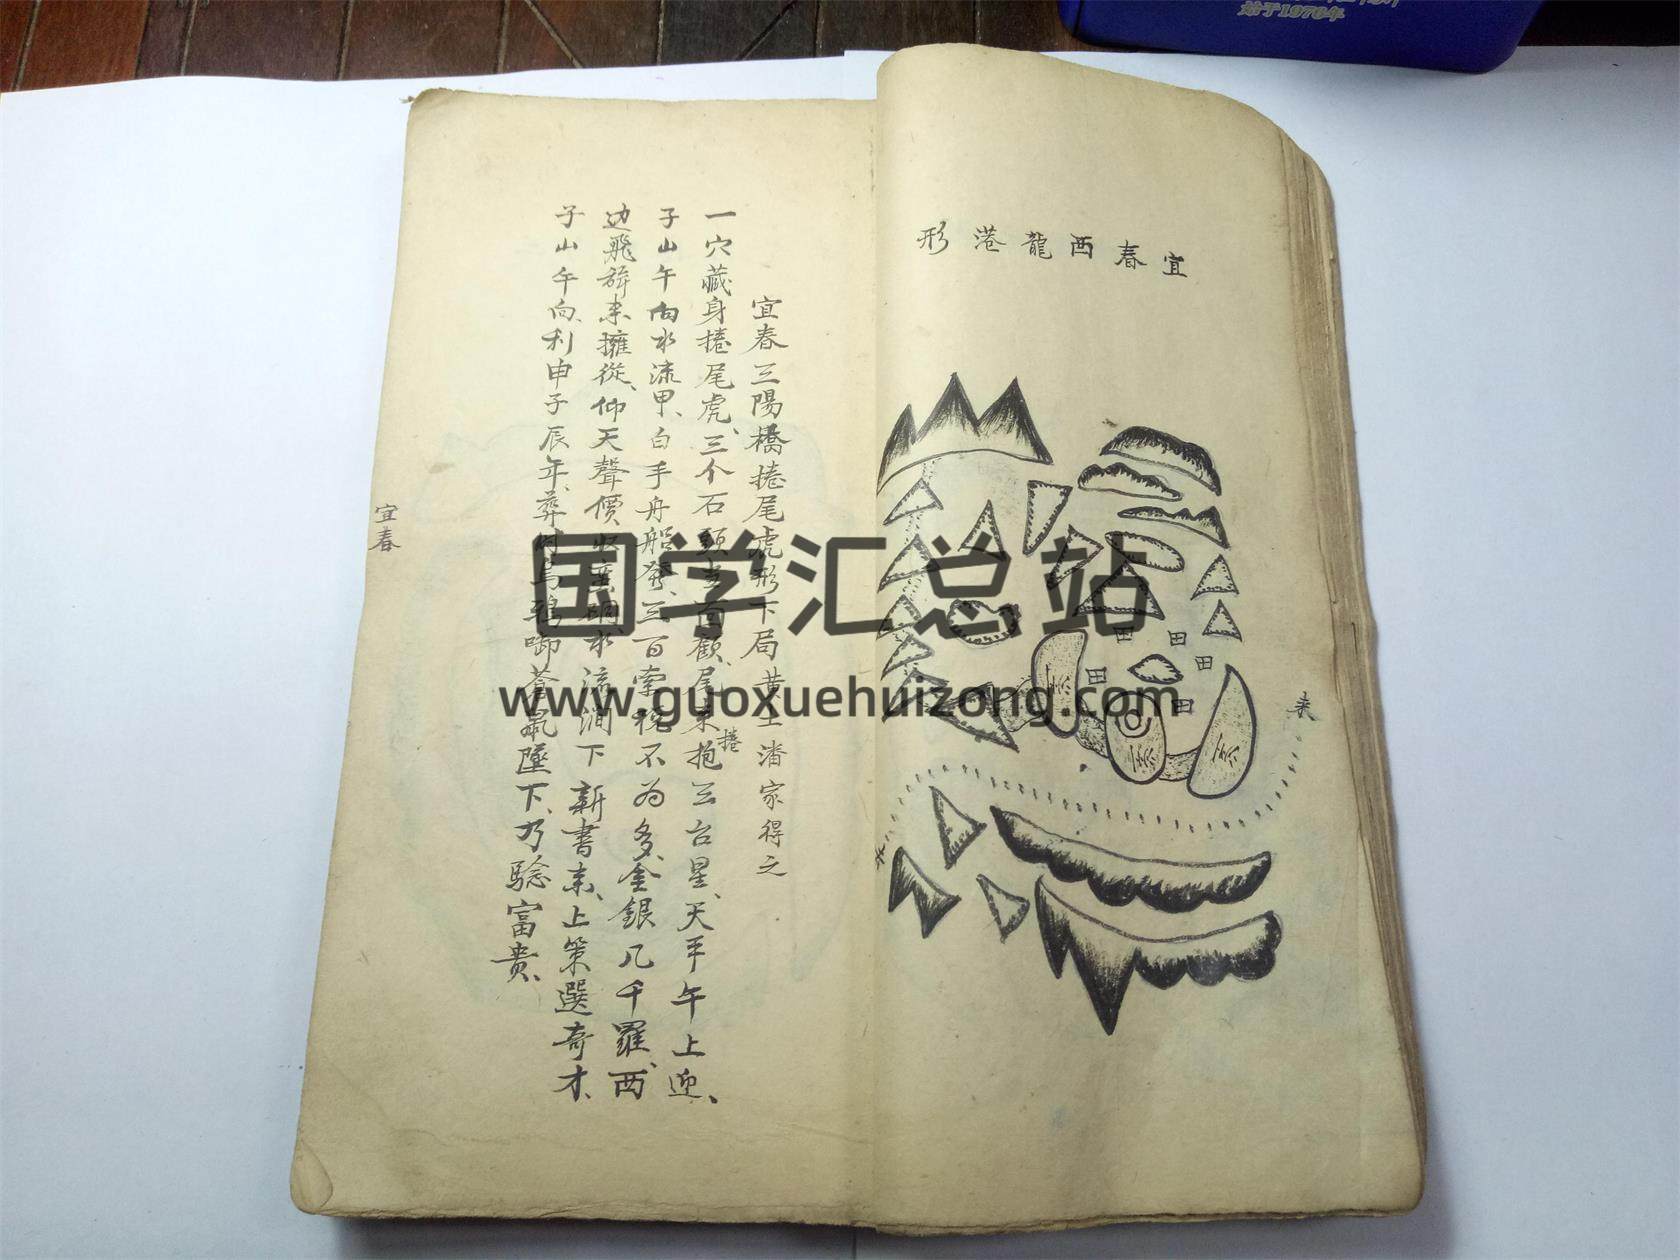 始于1970年
宜春西龍港形
田
田
田
田
田
来
宜春三陽橋捲尾虎形下局黄土潘家得之
一穴藏身捲尾虎、三个石頭 顧尾来捲抱三台星、天平午上迎、
子山午向水流甲、白手舟船發、三百索税不為多、金銀几千羅、西
边飛 来擁從、仰天聲價 水流澗下新書来、上策選奇才、
子山午向、利申子辰年、葬 烏鴉啣蒼鼠墜下、乃騐富貴、
宜春
国学汇总站
www.guoxuehuizong.com